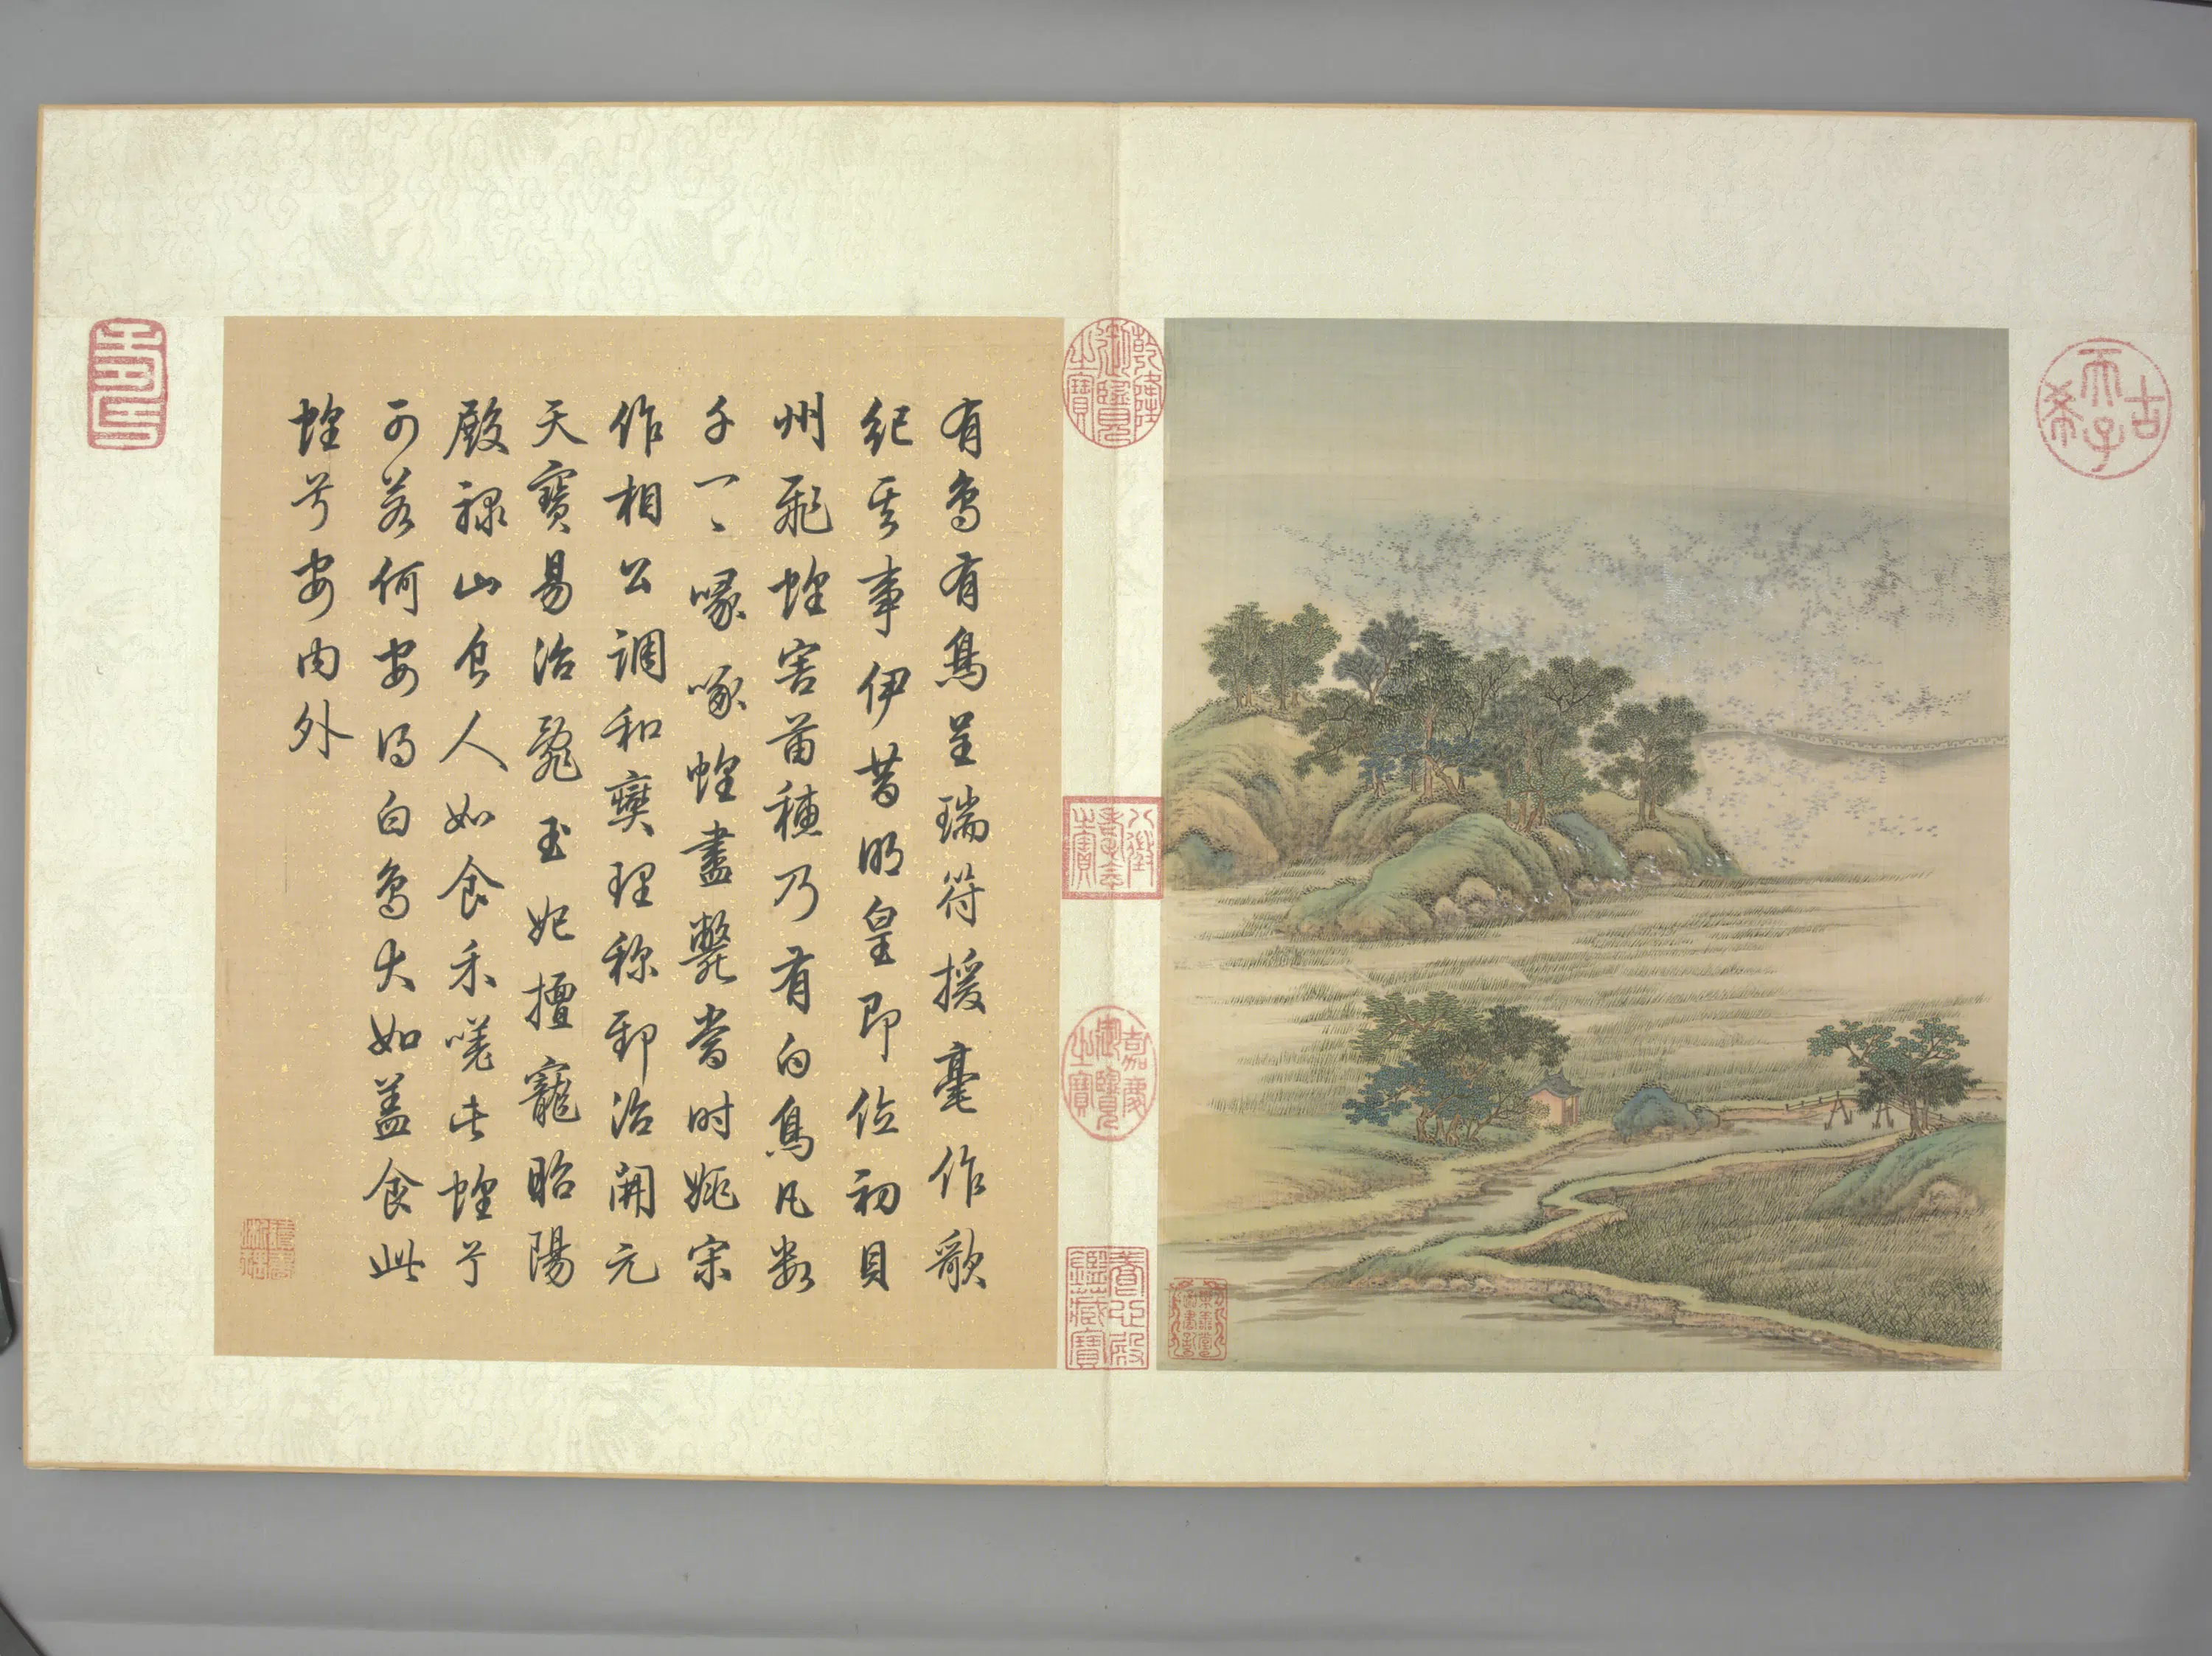 古希天子
有鳥有鳥呈瑞符援毫作歌
紀其事伊昔明皇即位初貝
州飛蝗害苗穗乃有白鳥凡數
千一〻喙啄蝗盡斃當時姚宋
作相公調和爕理称郅治開元
天寶易治亂玉妃擅寵昭陽
殿祿山食人如食禾此蝗兮
可若何安得白鳥大如蓋食此
蝗兮安內外
乾隆御覽之寶
八徵耄念之寶
嘉慶御覽之寶
養心殿鑑藏寶
壽